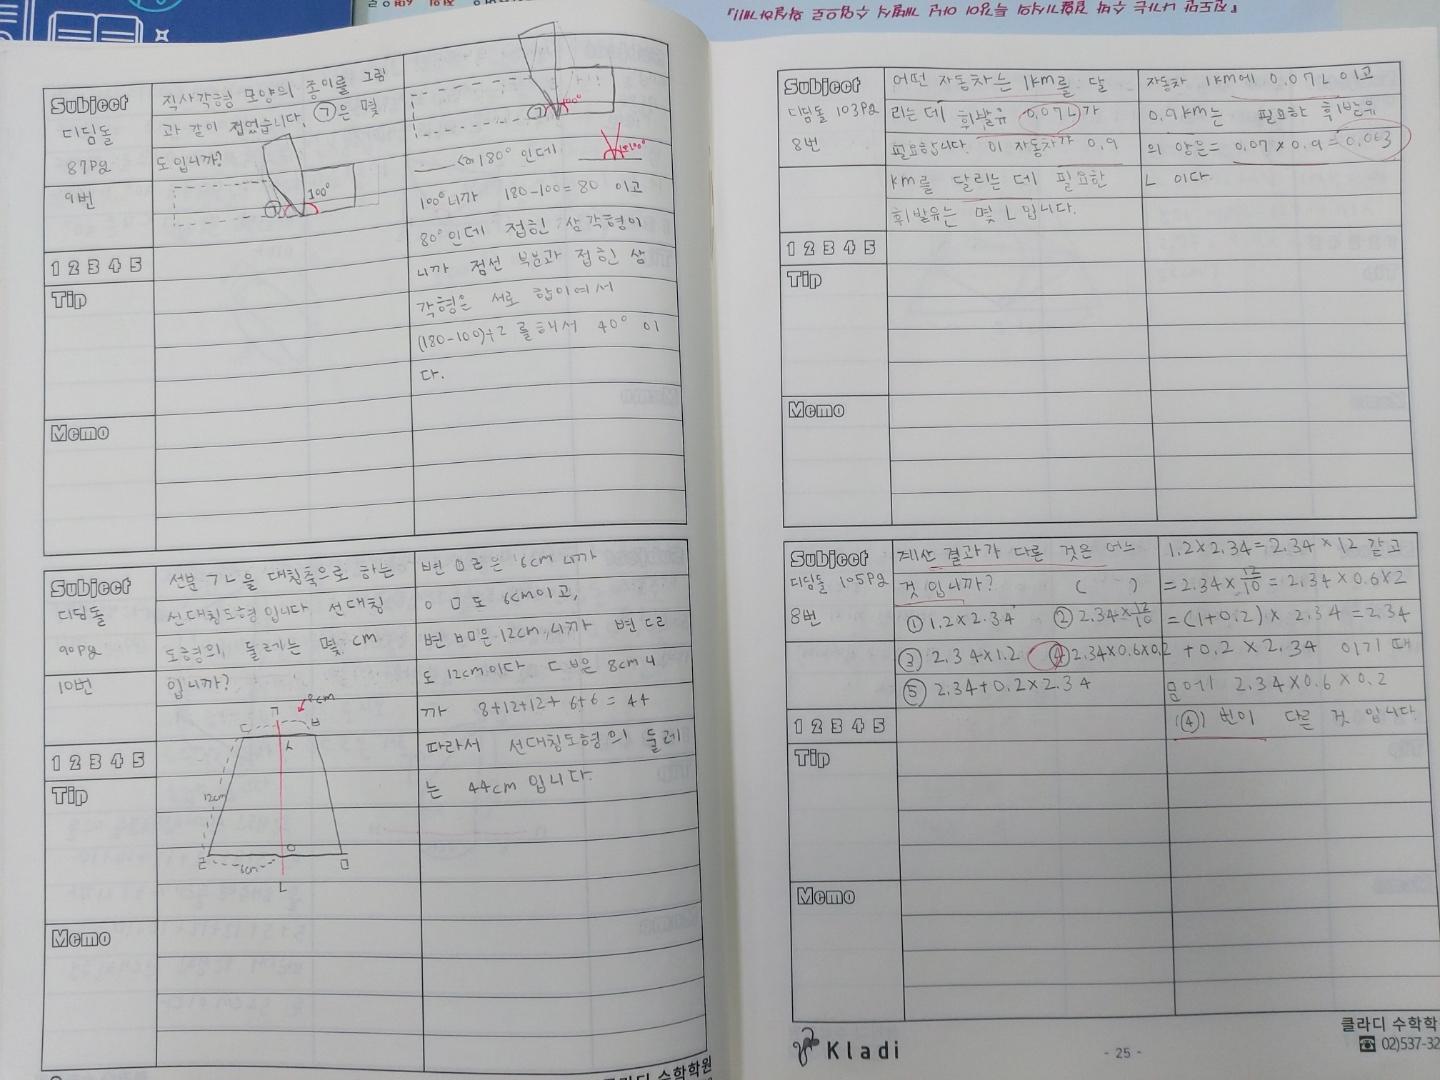 Subject
디딤돌
87pg
9번
직사각형 모양의 종이를 그림
과 같이 접었습니다. ㉠은 몇
도 입니까?
100°
㉠
㉠
100°
180° 인데
100°니까 180-100=80 이고
80°인데 접힌 삼각형이
니까 점선 부분과 접힌 삼
각형은 서로 합이여서
(180-100)÷2 를 해서 40° 이
다.
1 2 3 4 5
Tip
Memo
Subject
디딤돌
90pg
10번
선분 ㄱㄴ을 대칭축으로 하는
선대칭도형 입니다 선대칭
도형의 둘레는 몇 cm
입니까?
8cm
ㄱ
ㄷ
ㅂ
12cm
ㄹ
6cm
ㅇ
ㅁ
ㄴ
변 ㅇㄹ은 6cm 니까
ㅇㅁ도 6cm이고,
변 ㅂㅁ은 12cm,니까 변 ㄷㄹ
도 12cm이다 ㄷㅂ은 8cm 니
까 8+12+12+6+6 = 44
따라서 선대칭도형의 둘레
는 44cm 입니다.
1 2 3 4 5
Tip
Memo
Subject
디딤돌 103pg
8번
어떤 자동차는 1km를 달
리는 데 휘발유 0.07L가
필요합니다. 이 자동차가 0.9
km를 달리는 데 필요한
휘발유는 몇 L 입니다.
자동차 1km에 0.07L 이고
0.9km는 필요한 휘발유
의 양은= 0.07×0.9=0.063
L 이다.
1 2 3 4 5
Tip
Memo
Subject
디딤돌 105pg
8번
계산 결과가 다른 것은 어느
것 입니까? ( )
① 1.2×2.34 ② 2.34×12/10
③ 2.34×1.2 ④ 2.34×0.6×0.2
⑤ 2.34+0.2×2.34
1.2×2.34=2.34×12 같고
=2.34×12/10=2.34×0.6×2
=(1+0.2)×2.34=2.34
+0.2×2.34 이기 때
문에 2.34×0.6×0.2
(④) 번이 다른 것 입니다.
1 2 3 4 5
Tip
Memo
Kladi
- 25 -
클라디 수학학
☎ 02)537-32
클라디 수학학원